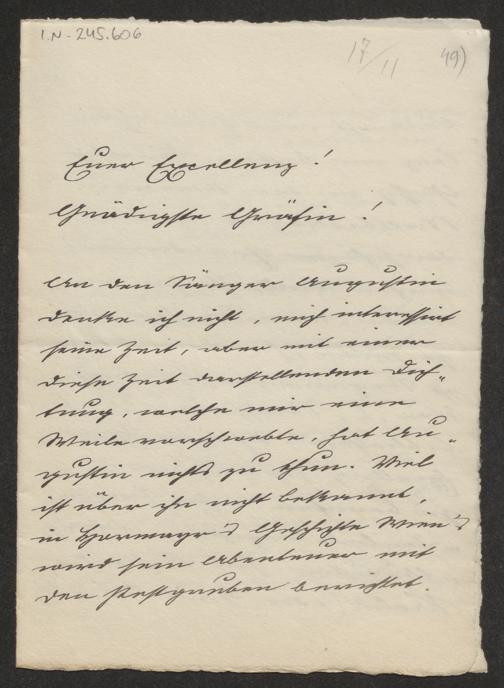 I.N. 245.606
17/11
49)
Euer Excellenz!
Gnädigste Gräfin!
An den Sänger Augustin
denke ich nicht, mich interessirt
seine Zeit, aber mit einer
diese Zeit darstellenden Dich„
tung, welche mir eine
Weile vorschwebte, hat Au„
gustin nichts zu thun. Viel
ist über ihn nicht bekannt,
in Hormayr's Geschichte Wien's
wird sein Abenteuer mit
den Pestgruben berichtet.